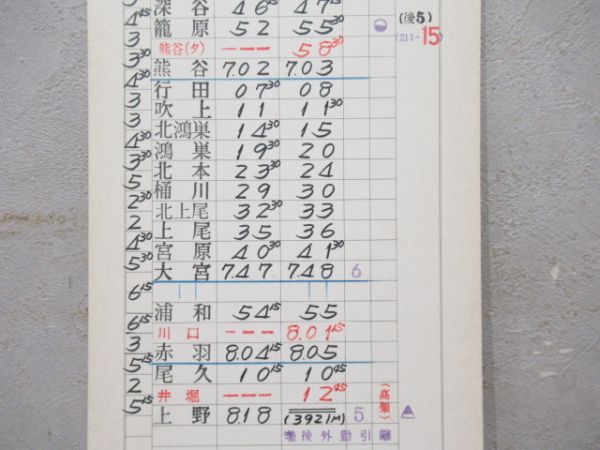 4 15 深谷 46 15 47 15
3 籠原 52 55 30 (後5)
3 熊谷(タ) --- 58 30 (211-15
3 30 熊谷 7.02 7.03
4 30 行田 07 30 08
3 吹上 11 11 30
3 北鴻巣 14 30 15
4 30 鴻巣 19 30 20
3 30 北本 23 30 24
5 桶川 29 30
2 30 北上尾 32 30 33
2 上尾 35 36
4 30 宮原 40 30 41 30
5 30 大宮 7.47 7.48 6
6 15
浦和 54 15 55
6 15 川口 --- 8.01 15
3 赤羽 8.04 15 8.05
5 15 尾久 10 15 10 45
2 井堀 --- 12 45 (高架)
5 15 上野 8.18 (3921M) 5
着後外勤引継